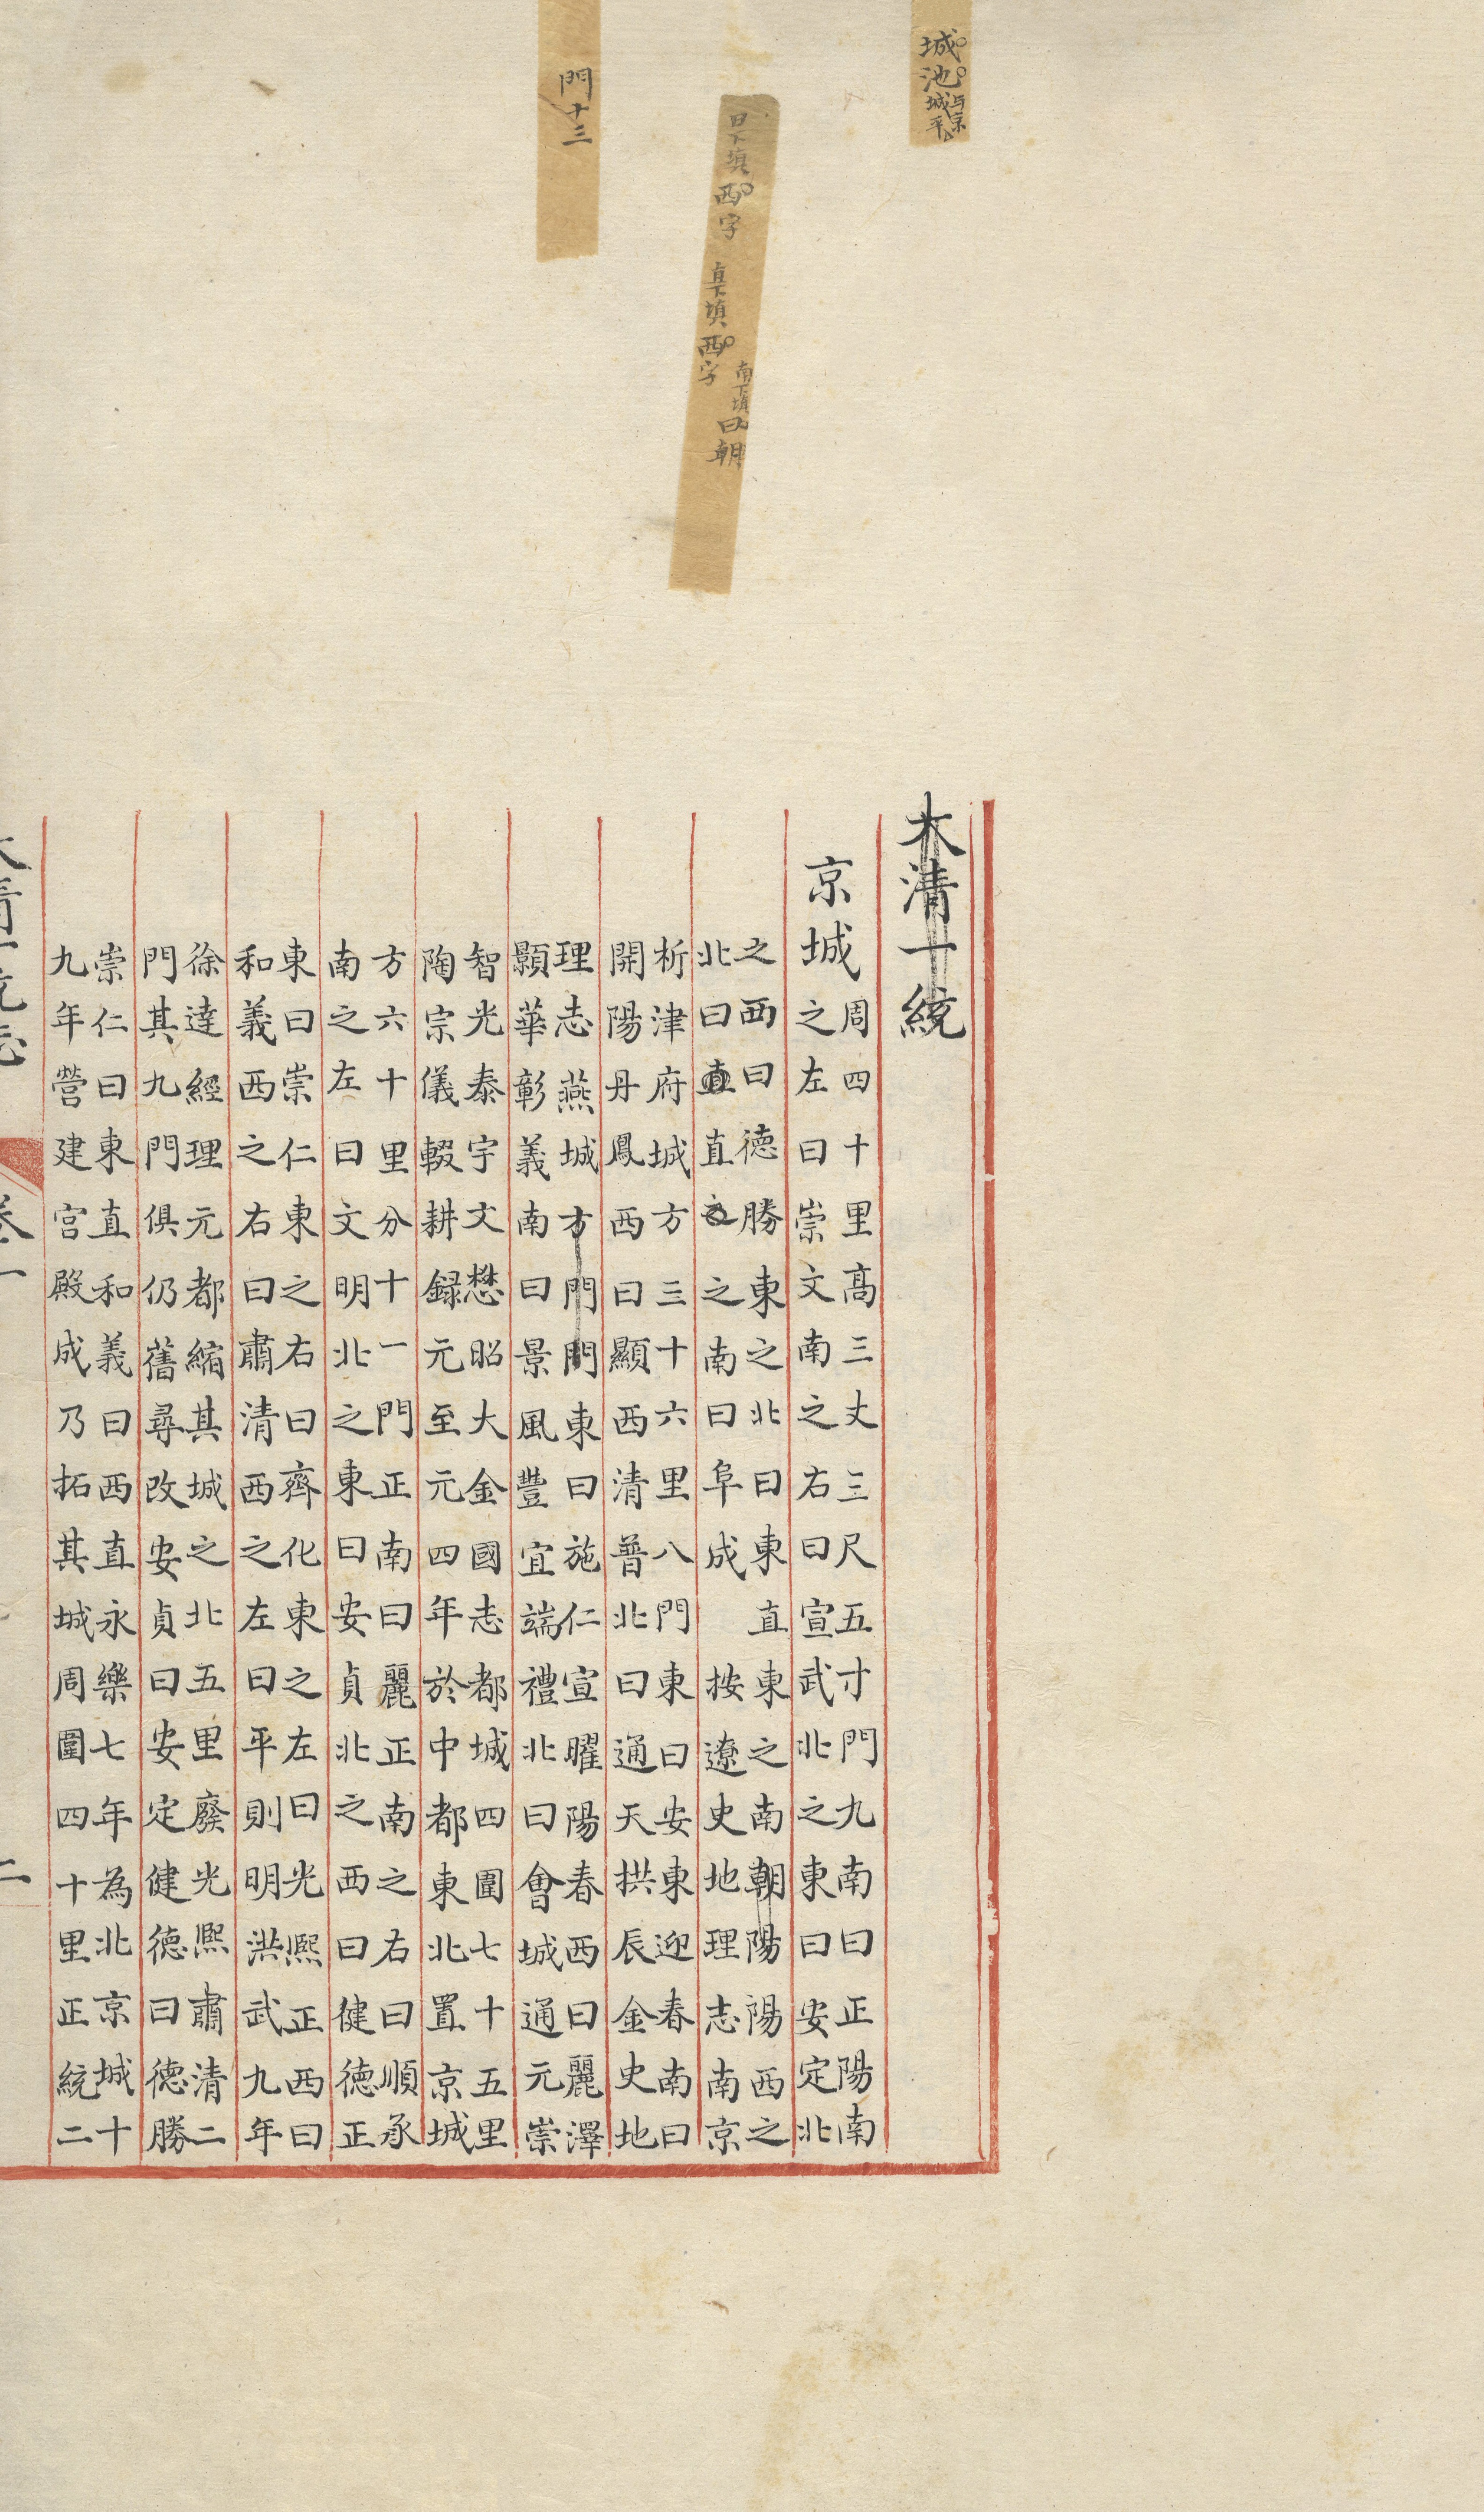 城池与京
城平
曰下填西字 直下填西字
南下填曰朝
門十三
大清一統
京城
周四十里髙三丈三尺五寸門九南曰正陽南
之左曰崇文南之右曰宣武北之東曰安定北
之西曰德勝東之北曰東直東之南朝陽陽西之
北曰直直之之南曰阜成 按遼史地理志南京
析津府城方三十六里八門東曰安東迎春南曰
開陽丹鳳西曰顯西清普北曰通天拱辰金史地
理志燕城方門門東曰施仁宣曜陽春西曰麗澤
顥華彰義南曰景風豐宜端禮北曰會城通元崇
智光泰宇文懋昭大金國志都城四圍七十五里
陶宗儀輟耕録元至元四年於中都東北置京城
方六十里分十一門正南曰麗正南之右曰順承
南之左曰文明北之東曰安貞北之西曰健德正
東曰崇仁東之右曰齊化東之左曰光熈正西曰
和義西之右曰肅清西之左曰平則明洪武九年
徐達經理元都縮其城之北五里廢光熈肅清二
門其九門俱仍舊尋改安貞曰安定健德曰德勝
崇仁曰東直和義曰西直永樂七年為北京城十
九年營建宫殿成乃拓其城周圍四十里正統二
大清一統志 卷一 二